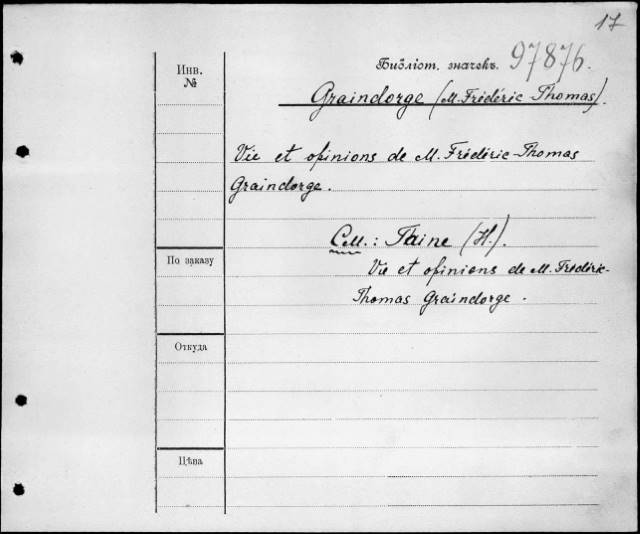 17
Инв.
№
Библіот. значекъ. 97876.
Graindorge (M. Frédéric-Thomas).
Vie et opinions de M. Frédéric-Thomas
Graindorge.
См.: Taine (H.).
По заказу
Vie et opinions de M. Frédéric-
Thomas Graindorge.
Откуда
Цѣна